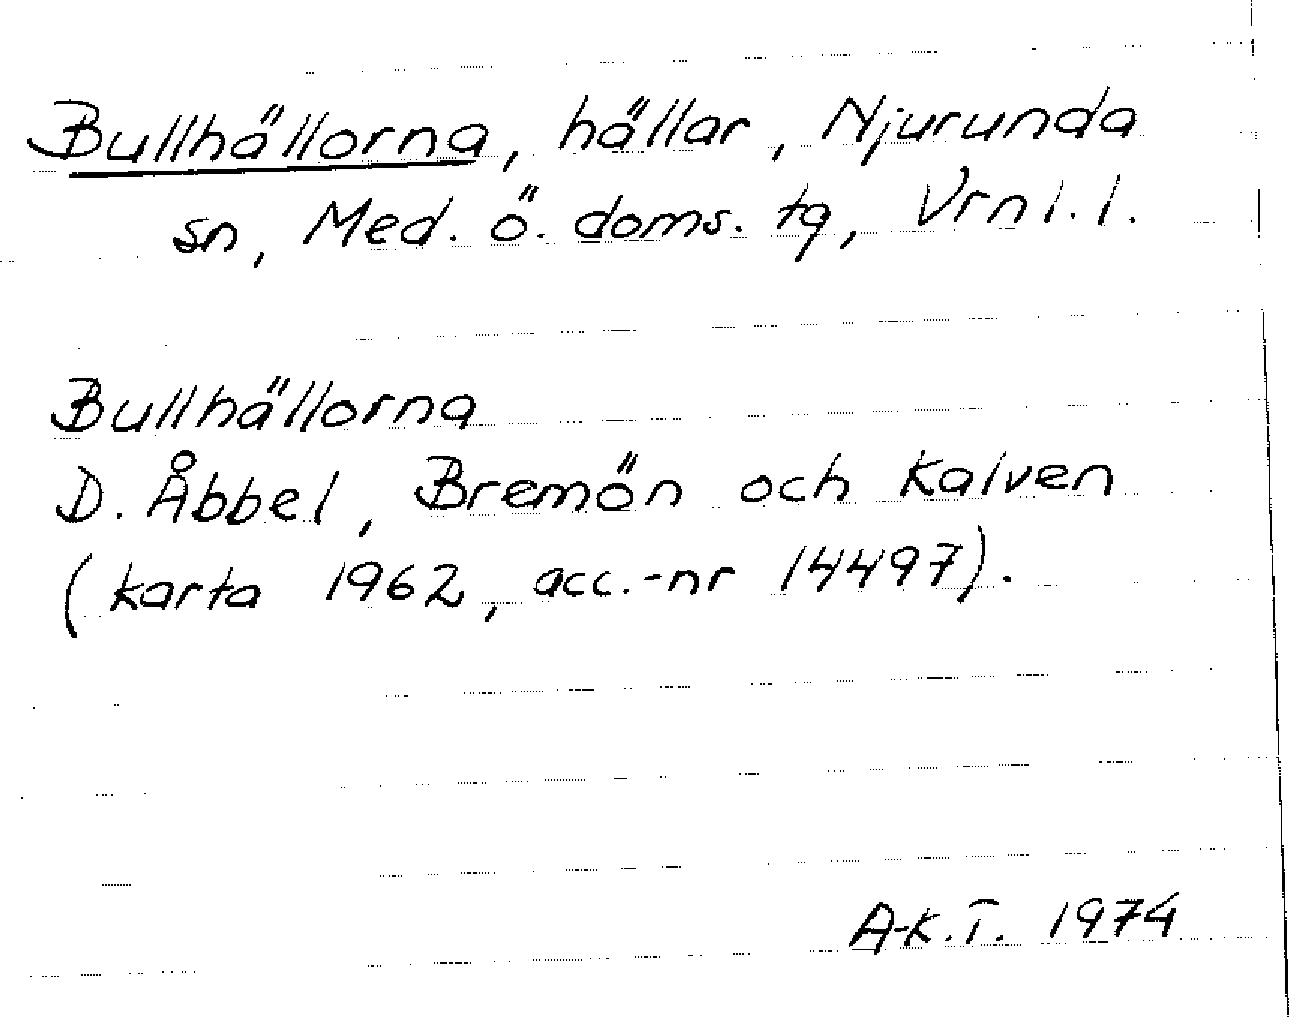 Bullhällorna, hällar, Njurunda
sn, Med. ö. doms. tg, Vrnl. l.
Bullhällorna
D. Åbbel, Bremön och Kalven
(karta 1962, acc.-nr 14497).
A-K.T. 1974